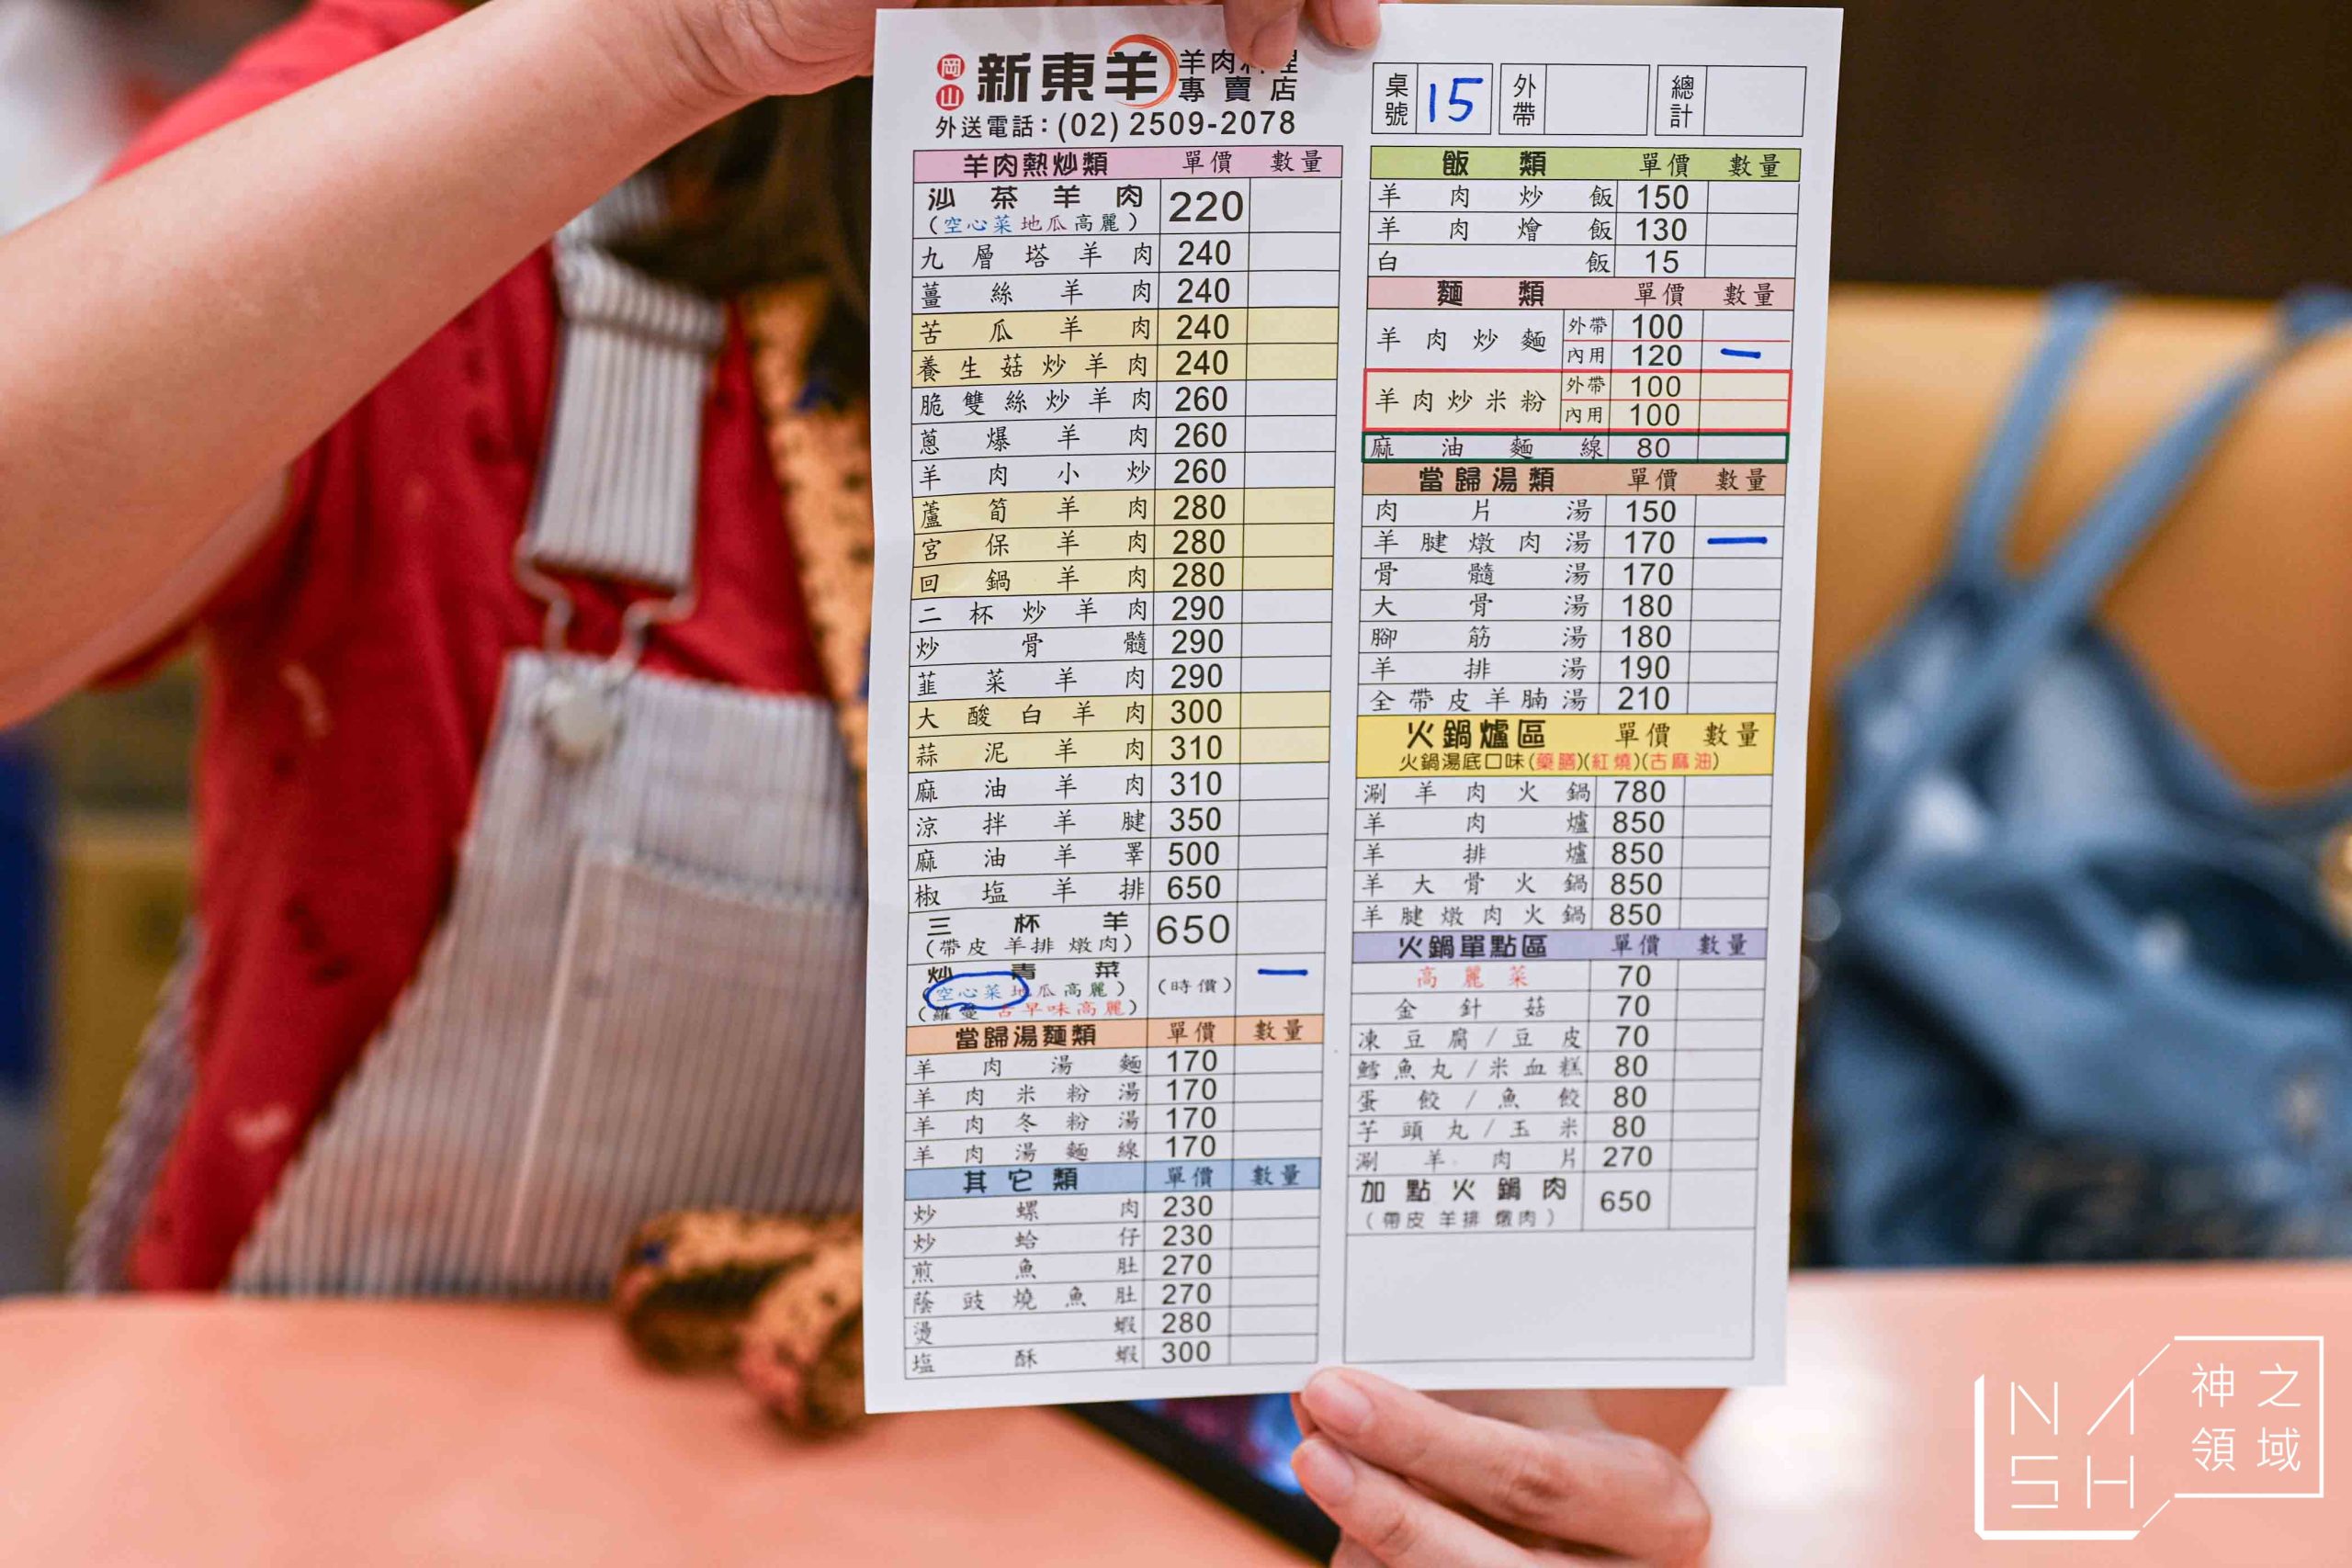 岡山 新東羊 羊肉料理
專賣店
外送電話：(02) 2509-2078
羊肉熱炒類 單價 數量
沙茶羊肉 220
(空心菜 地瓜 高麗)
九層塔羊肉 240
薑絲羊肉 240
苦瓜羊肉 240
養生菇炒羊肉 240
脆雙絲炒羊肉 260
蔥爆羊肉 260
羊肉小炒 260
蘆筍羊肉 280
宮保羊肉 280
回鍋羊肉 280
二杯炒羊肉 290
炒骨髓 290
韮菜羊肉 290
大酸白羊肉 300
蒜泥羊肉 310
麻油羊肉 310
涼拌羊腱 350
麻油羊睪 500
椒塩羊排 650
三杯羊 650
(帶皮 羊排 燉肉)
炒青菜 (時價) 一
(空心菜 地瓜 高麗)
(羅蔓 古早味高麗)
當歸湯麵類 單價 數量
羊肉湯麵 170
羊肉米粉湯 170
羊肉冬粉湯 170
羊肉湯麵線 170
其它類 單價 數量
炒螺肉 230
炒蛤仔 230
煎魚肚 270
蔭豉燒魚肚 270
燙蝦 280
塩酥蝦 300
桌號 15 外帶 總計
飯類 單價 數量
羊肉炒飯 150
羊肉燴飯 130
白飯 15
麵類 單價 數量
羊肉炒麵 外帶 100
內用 120 一
羊肉炒米粉 外帶 100
內用 100
麻油麵線 80
當歸湯類 單價 數量
肉片湯 150
羊腱燉肉湯 170 一
骨髓湯 170
大骨湯 180
腳筋湯 180
羊排湯 190
全帶皮羊腩湯 210
火鍋爐區 單價 數量
火鍋湯底口味(藥膳)(紅燒)(古麻油)
涮羊肉火鍋 780
羊肉爐 850
羊排爐 850
羊大骨火鍋 850
羊腱燉肉火鍋 850
火鍋單點區 單價 數量
高麗菜 70
金針菇 70
凍豆腐/豆皮 70
鱈魚丸/米血糕 80
蛋餃/魚餃 80
芋頭丸/玉米 80
涮羊肉片 270
加點火鍋肉 650
(帶皮 羊排 燉肉)
NASH 神之領域